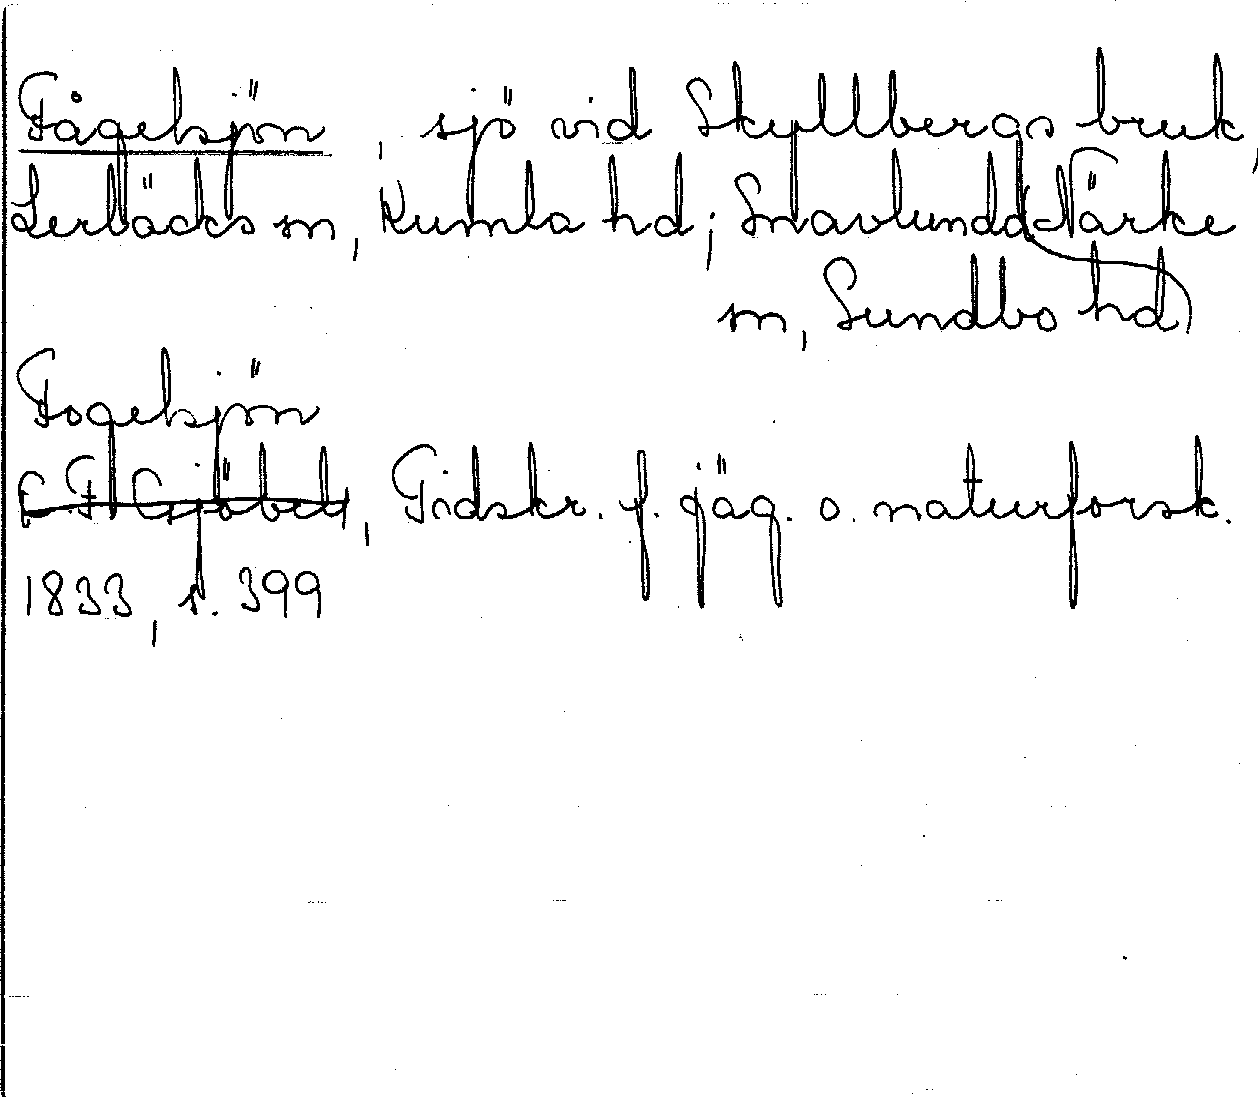 Fågelsjön, sjö vid Skyllbergs bruk,
Lerbäcks sn, Kumla hd; Snavlunda Närke
sn, Sundbo hd)
Fogelsjön
Tidskr. f. jäg. o. naturforsk.
1833, s. 399